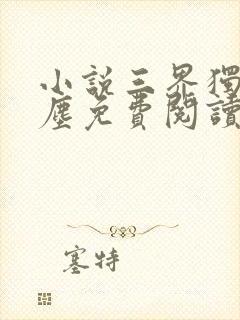 小説三界獨
塵免費閱讀
塞特